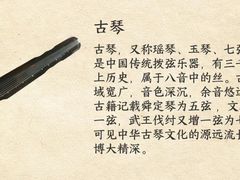 古琴
古琴，又称瑶琴、玉琴、七弦
是中国传统拨弦乐器，有三千
上历史，属于八音中的丝。古
域宽广，音色深沉，余音悠远
古籍记载舜定琴为五弦，文
一弦，武王伐纣又增一弦为七
可见中华古琴文化的源远流长
博大精深。